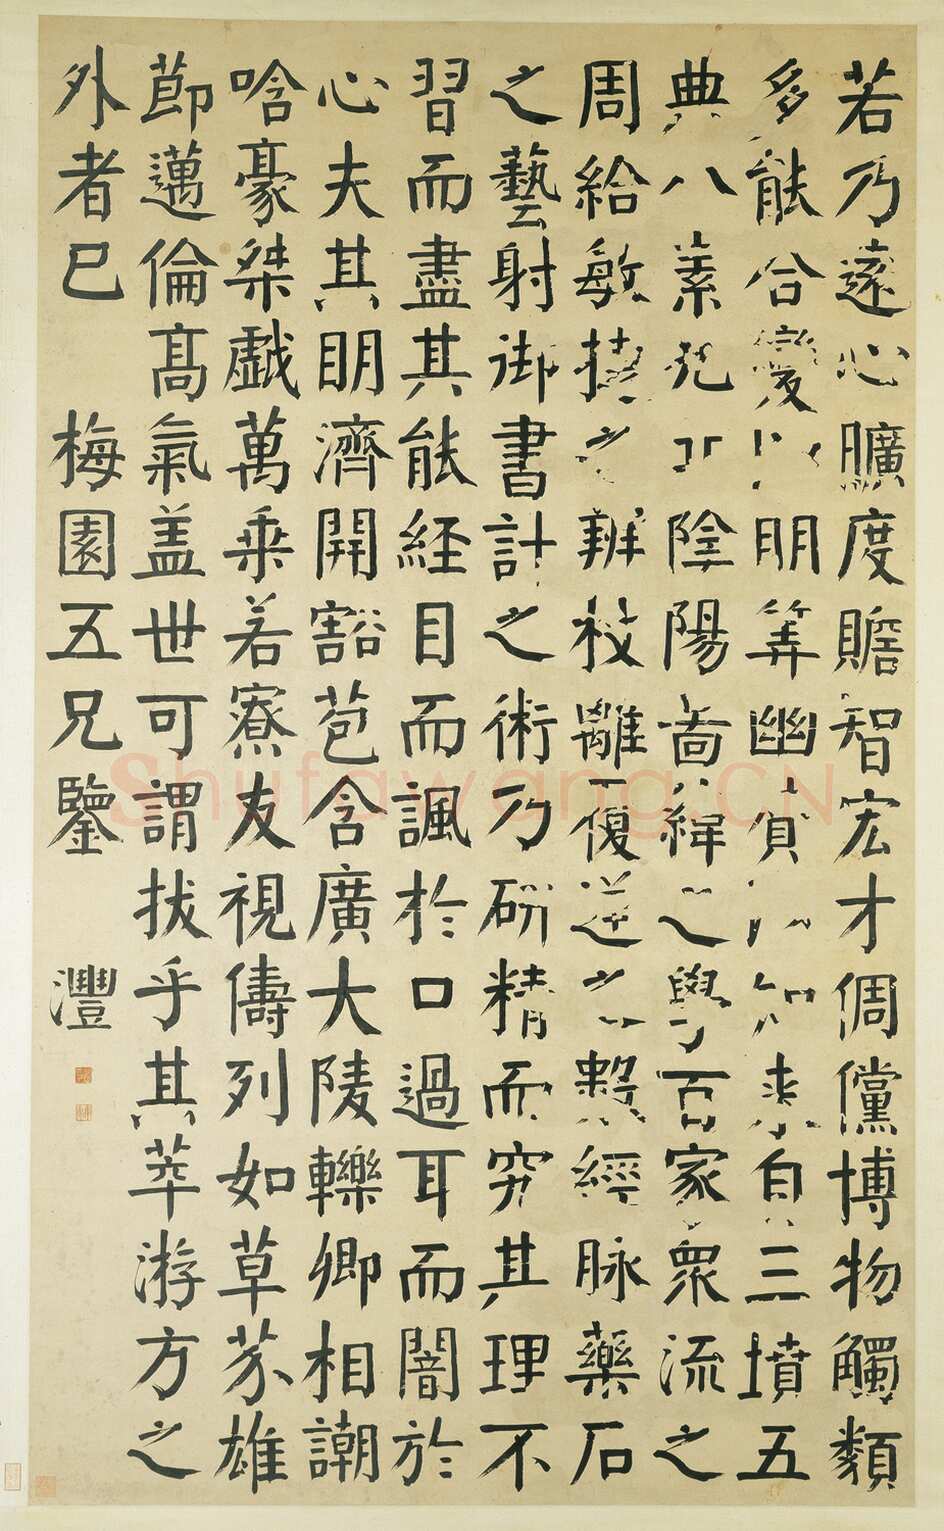 若乃遠心曠度贍智宏才倜儻博物觸類
多能合變以明筭幽賛以知来自三墳五
典八素九丘陰陽啚緯之學百家衆流之
周給敏捷之辨枝離覆逆之數經脉藥石
之藝射御書計之術乃研精而究其理不
習而盡其能経目而諷於口過耳而闇於
心夫其明濟開豁苞含廣大陵轢卿相潮
啥豪桀戯萬乗若寮友視儔列如草芥雄
莭邁倫髙氣盖世可謂拔乎其萃游方之
外者已 梅園五兄鑒 灃
Shufawang.CN